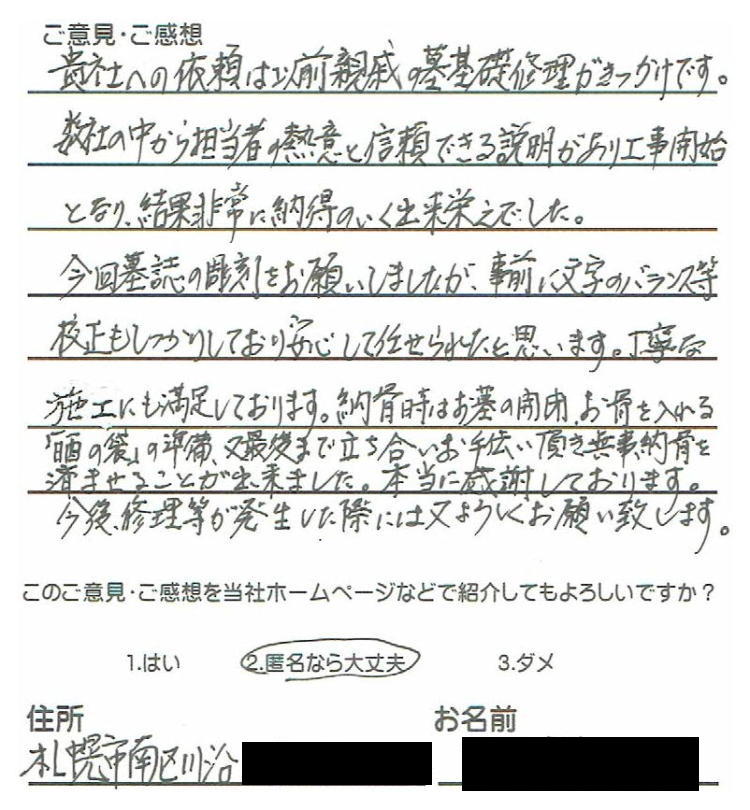 ご意見・ご感想
貴社への依頼は以前親戚の墓基礎修理がきっかけです。
数社の中から担当者の熱意と信頼できる説明があり工事開始
となり、結果非常に納得のいく出来栄えでした。
今回墓誌の彫刻をお願いしましたが、事前に文字のバランス等
校正もしっかりしており安心して任せられたと思います。丁寧な
施工にも満足しております。納骨時はお墓の開閉、お骨を入れる
「晒の袋」の準備、又最後まで立ち合いお手伝い頂き無事納骨を
済ませることが出来ました。本当に感謝しております。
今後、修理等が発生した際には又よろしくお願い致します。
このご意見・ご感想を当社ホームページなどで紹介してもよろしいですか？
1.はい 2.匿名なら大丈夫 3.ダメ
住所 お名前
札幌市南区川沿